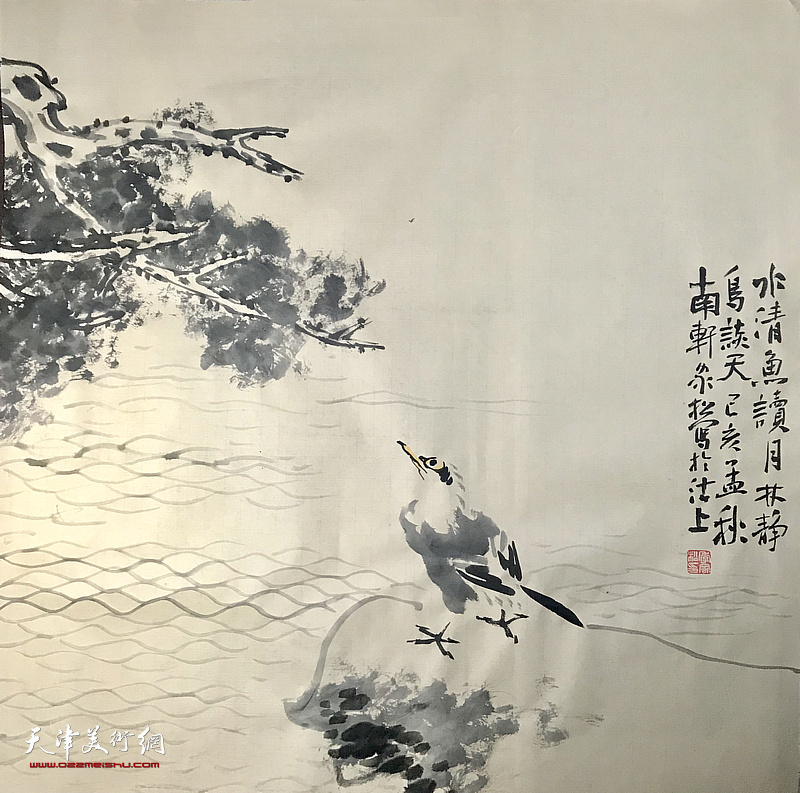 水清魚讀月林静
鳥談天己亥孟秋
南軒家松寫於沽上
天津美術網
www.022meishu.com